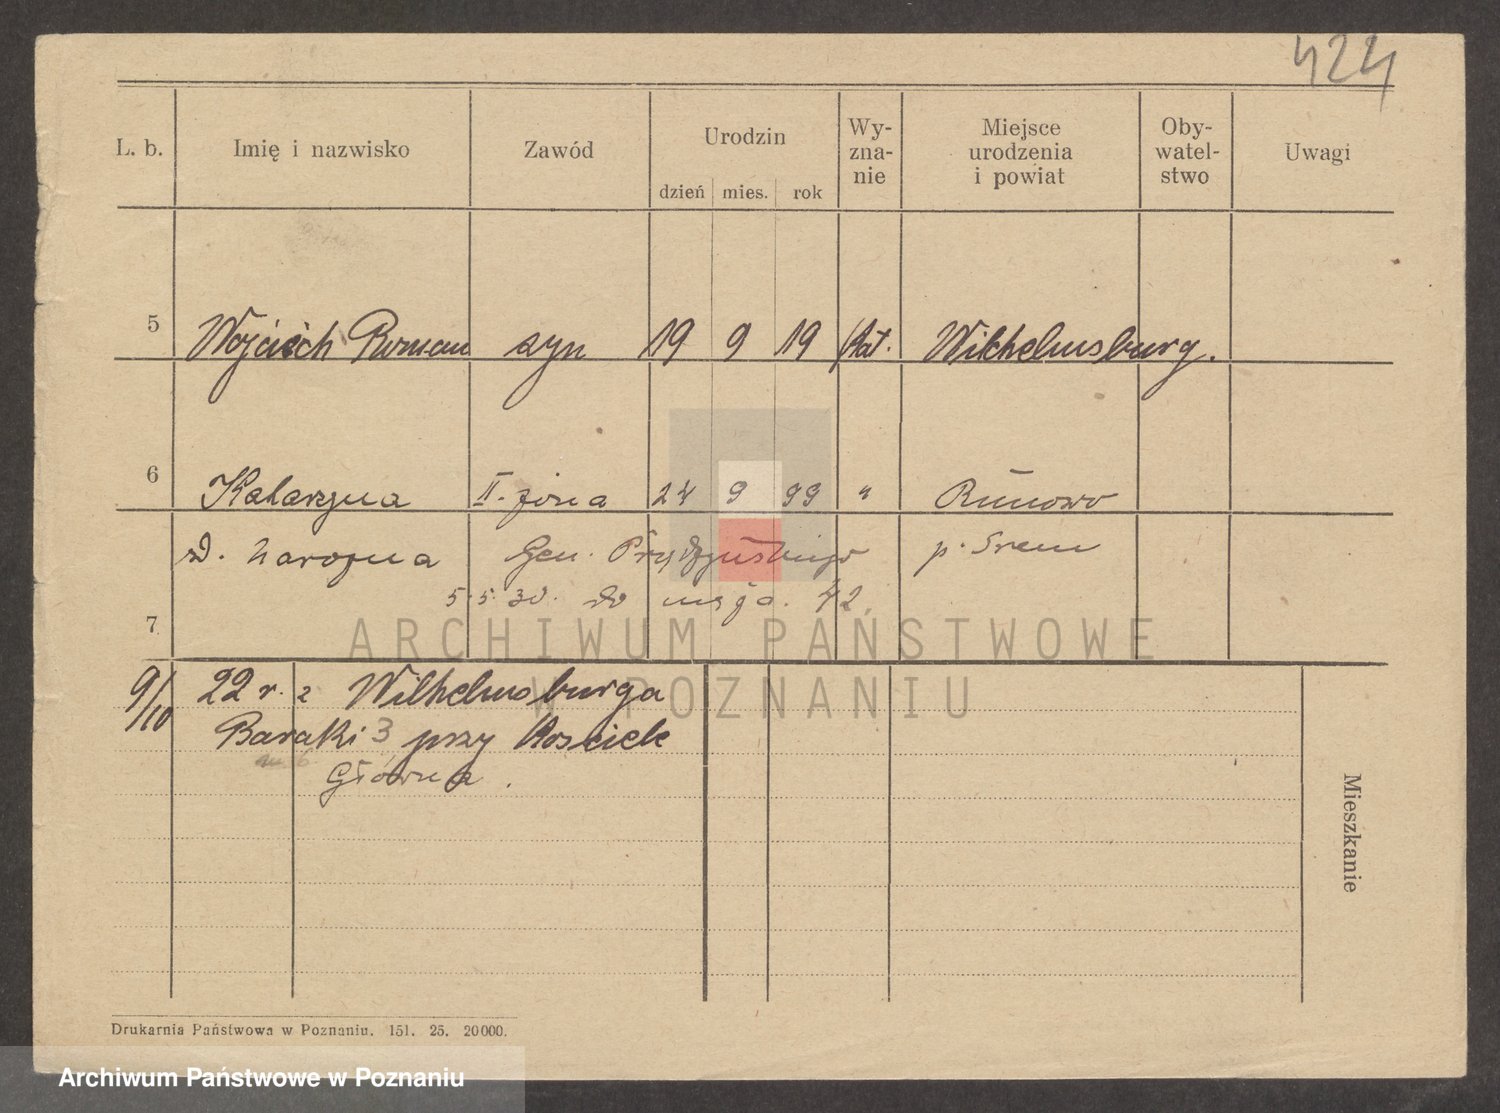 424
L. b. Imię i nazwisko Zawód Urodzin dzień mies. rok Wy-zna-nie Miejsce urodzenia i powiat Oby-watel-stwo Uwagi
5 Wojciech Roman syn 19 9 19 kat. Wilhelmsburg.
6 Katarzyna II. żona 24 9 99 " Runowo
D. Narożna Gen. Prądzyńskiego p. Srem
5.5.30. do męża. 42
7
ARCHIWUM PAŃSTWOWE
W POZNANIU
9/10 22 r. z Wilhelmsburga
Baraki 3 przy Kościele
Główna.
Mieszkanie
Drukarnia Państwowa w Poznaniu. 151. 25. 20000.
Archiwum Państwowe w Poznaniu